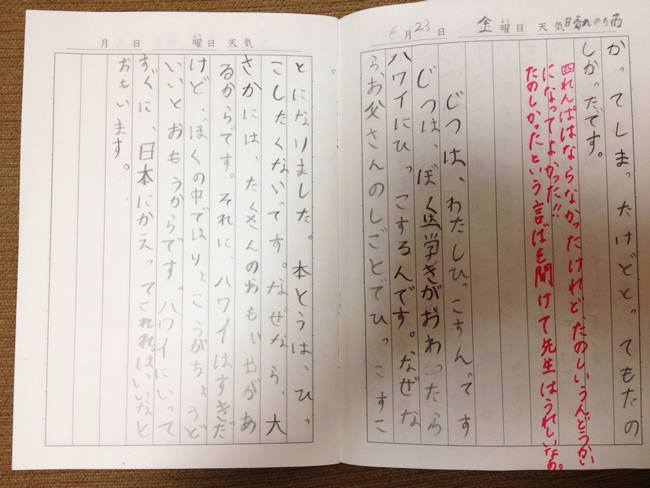 6月23日 金曜日 天気 晴れのち雨
かってしまったけどとってもたの
しかったです。
四れんぱはならなかったけれどたのしいうんどうかい
になってよかった!!
たのしかったという言ばを聞けて先生はうれしいなあ。
じつは、わたしひっこ
じつは、ぼくは学きがおわったら
ハワイにひっこするんです。なぜな
ら、お父さんのしごとでひっこすこ
月 日 曜日 天気
とになりました。本とうは、ひっ
こしたくないです。なぜなら、大
さかには、たくさんのおもい出があ
るからです。それに、ハワイはすきだ
けど、ぼくの中ではりょこうがちょうど
いいとおもうからです。ハワイにいって
すぐに、日本にかえってこれればいいなと
おもいます。